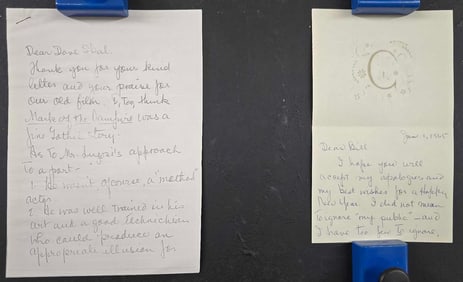 Dear Dave Shal.
Thank you for your kind
letter and your praise for
our old film. I, Too, think
Mark of the Vampire was a
fine Gothic story.
As To Mr. Lugosi's approach
To a part-
1. He wasn't, of course, a "method"
actor.
2. He was well trained in his
art and a good Technician
who could produce an
appropriate illusion for
G
Jan 1,
Dear Bill
I hope you will
accept my apologies and
my best wishes for a Happy
New Year. I did not mean
to ignore "my public" - and
I have too few to ignore.